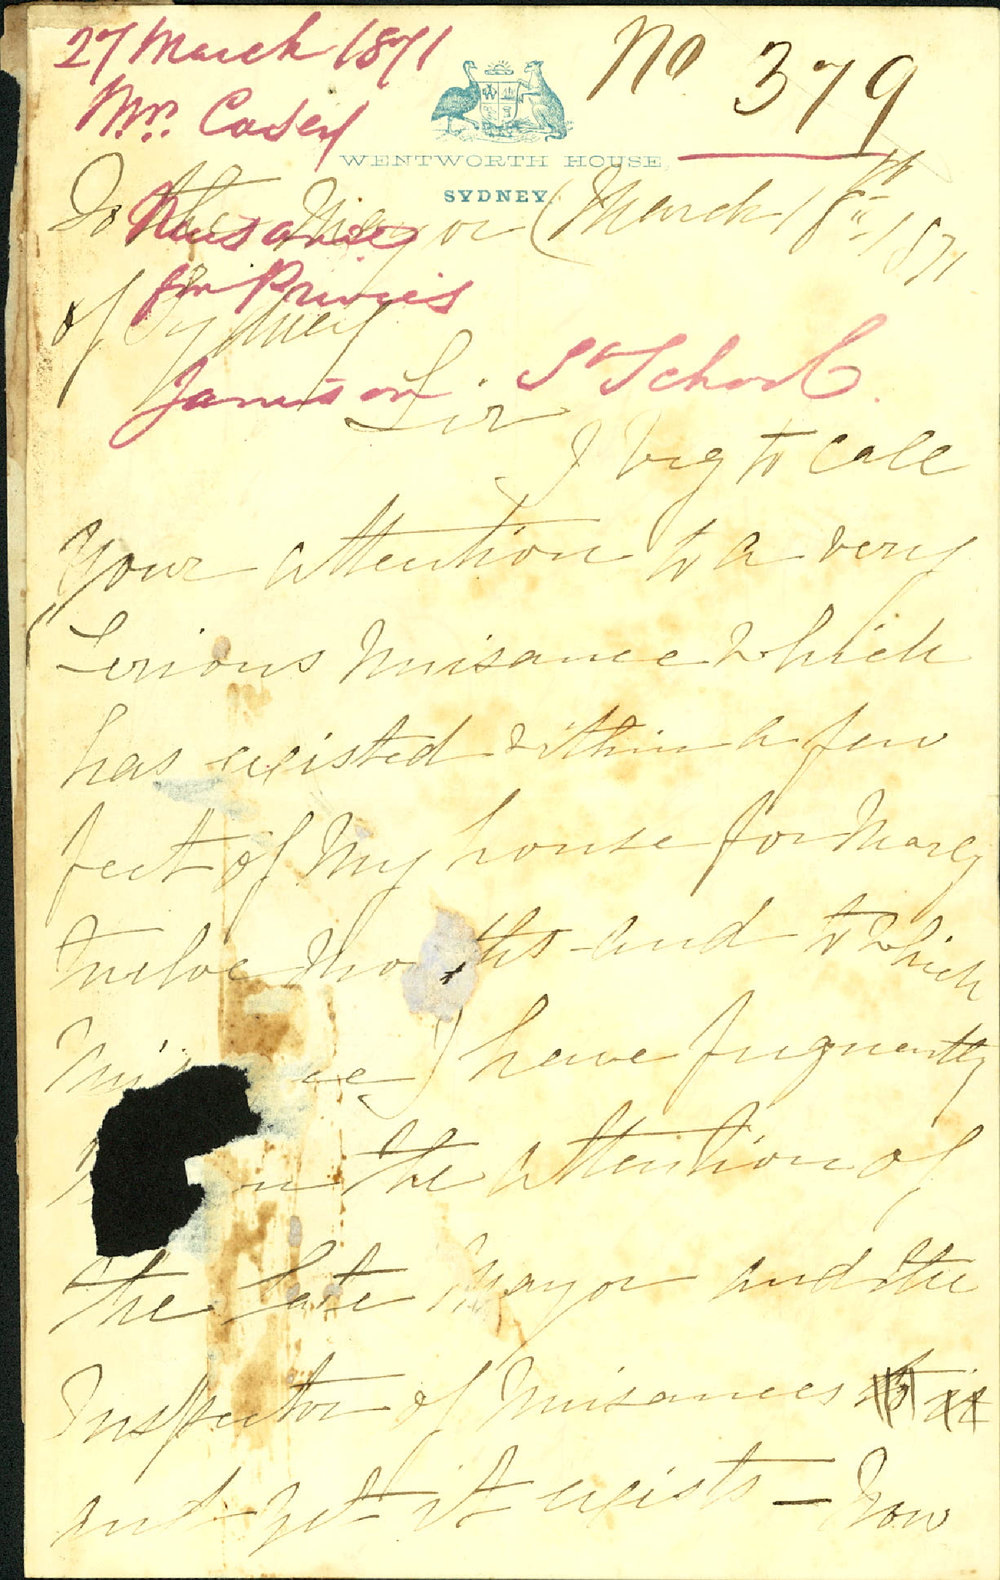 27 March 1871
No 379
Mrs. Casey
WENTWORTH HOUSE,
SYDNEY.
Nuisance
fm Privies
Jamison St School.
To the Mayor March 18th 1871
of Sydney
Sir
I beg to call
your attention to a very
serious nuisance which
has existed within a few
feet of my house for nearly
twelve months and to which
I have frequently
the attention of
the late Mayor and the
Inspector of Nuisances to it
and yet it exists – Now